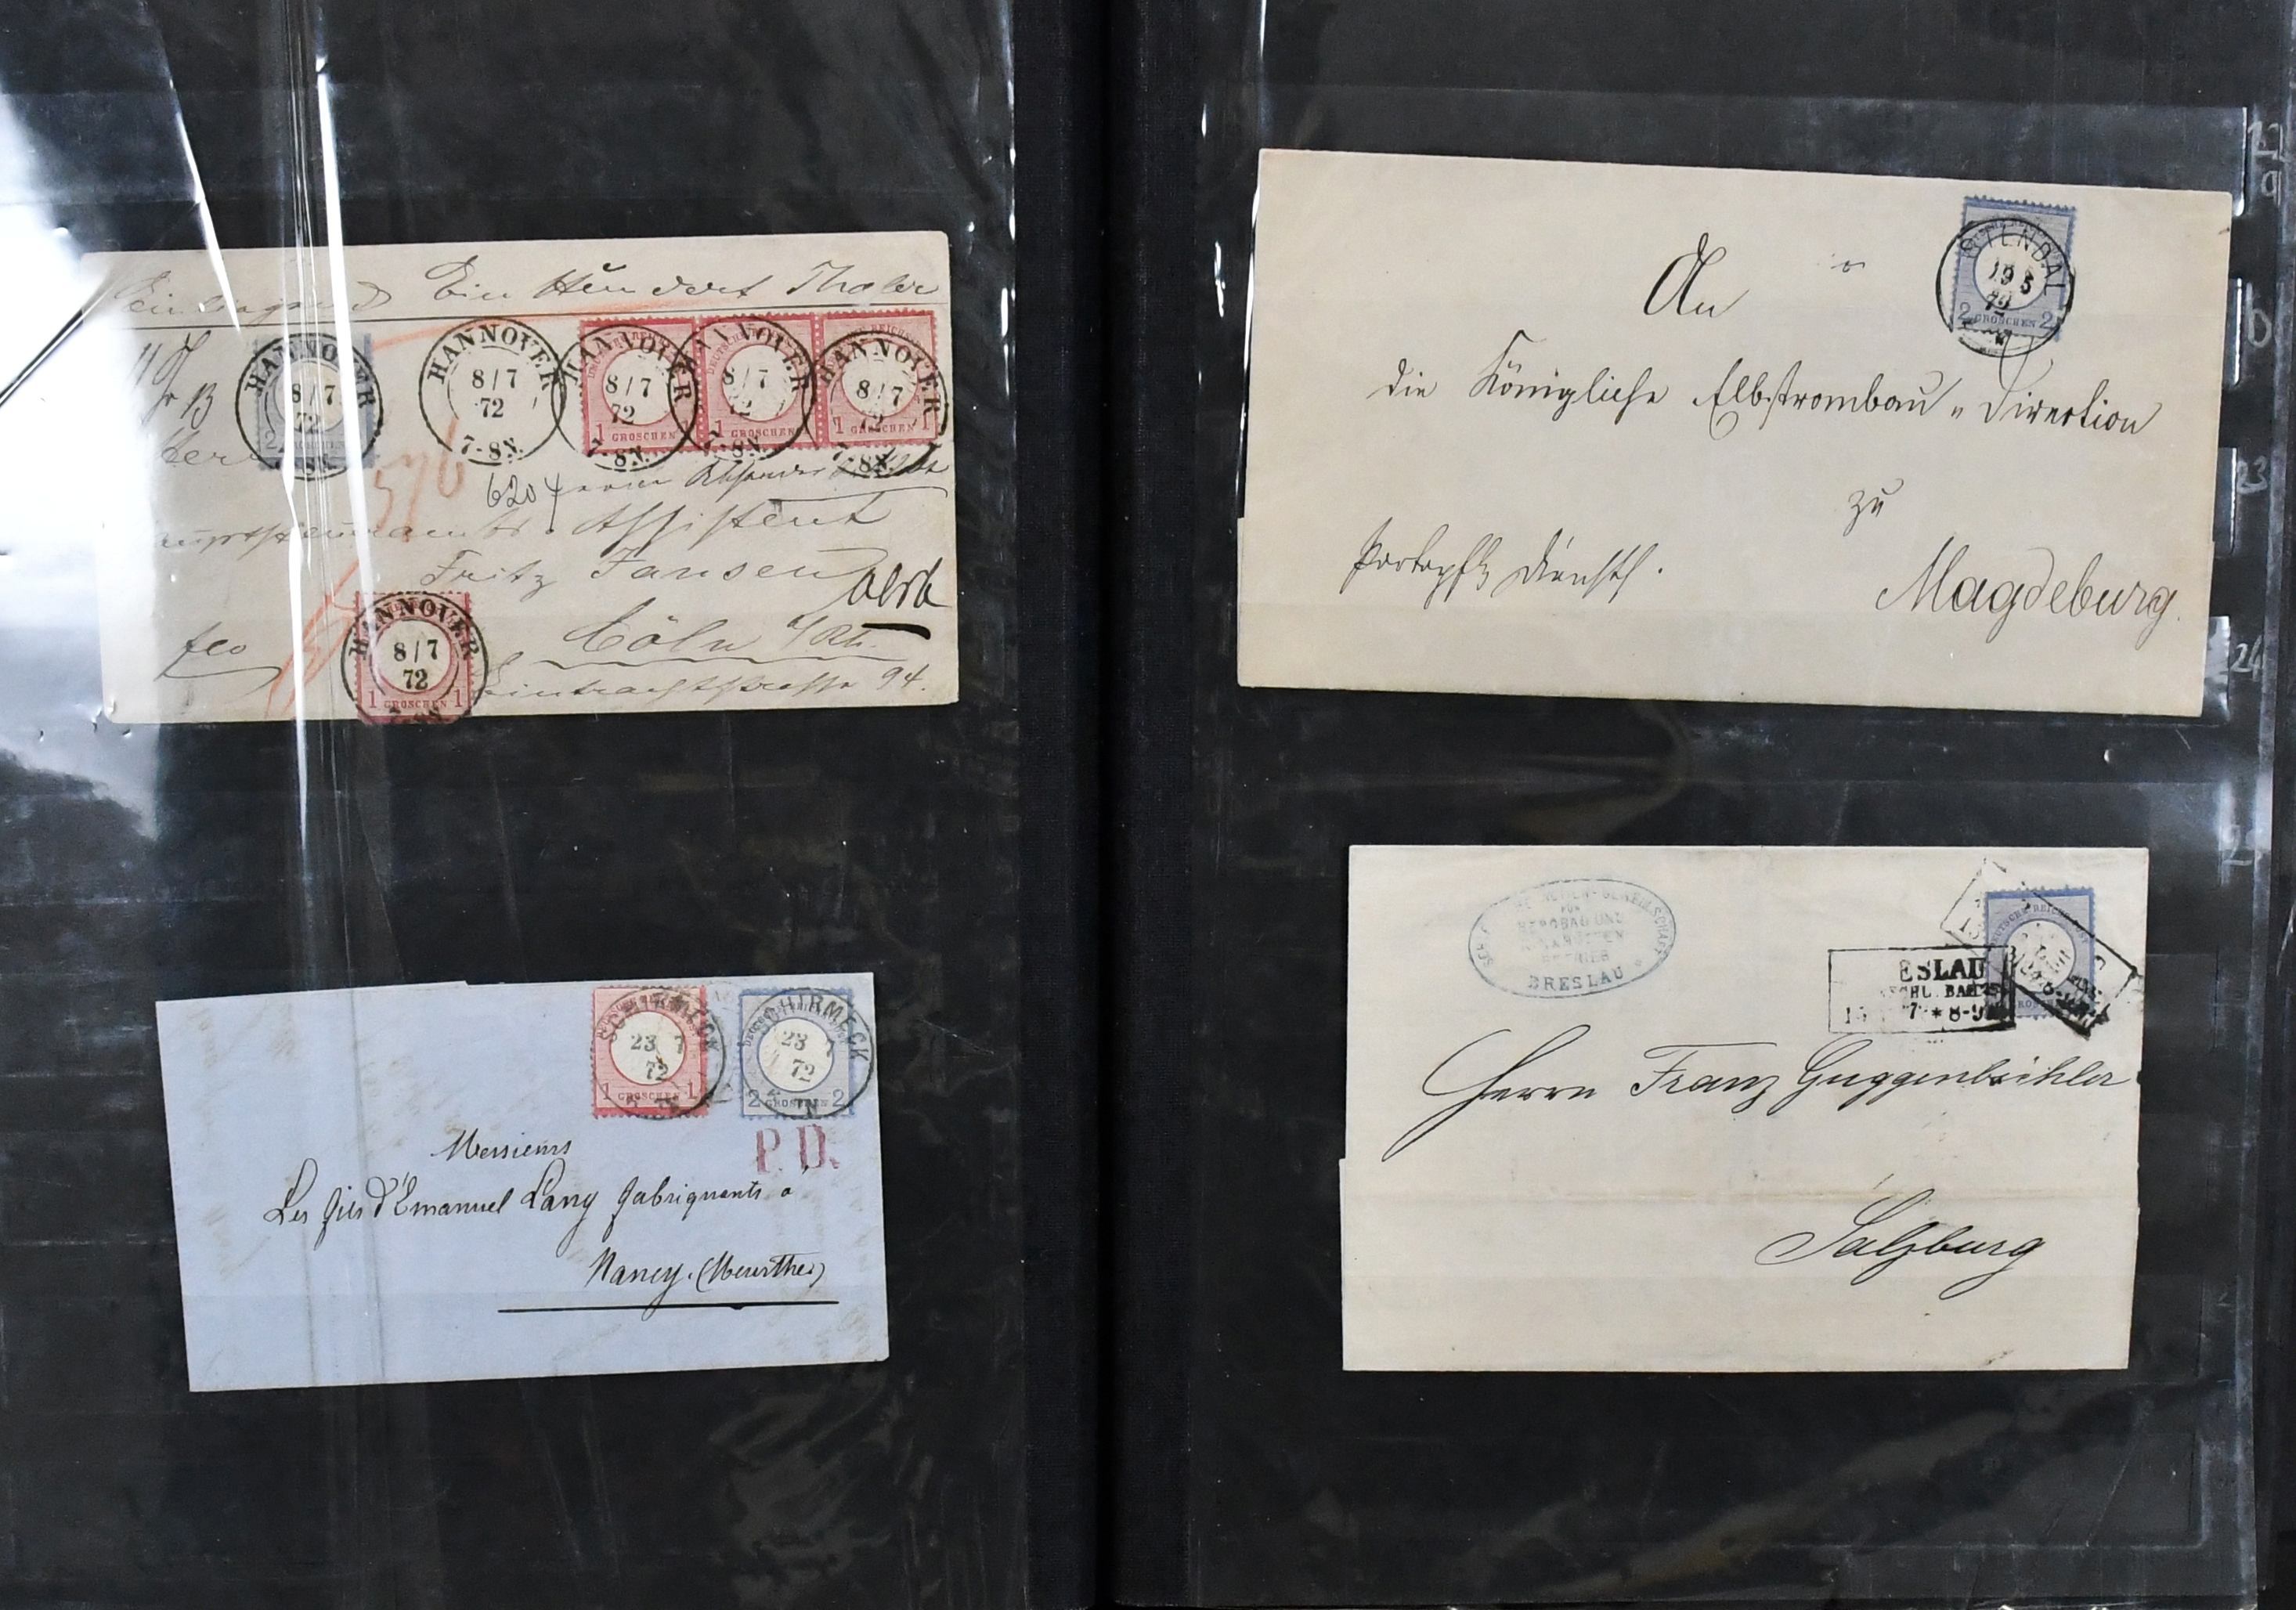 Ein Hundert Thaler
HANNOVER
8/7
72
HANNOVER
8/7
72
7-8N.
HANNOVER
8/7
72
7-8N.
1 GROSCHEN 1
HANNOVER
8/7
72
7-8N.
1 GROSCHEN 1
HANNOVER
8/7
72
1 GROSCHEN 1
6204
Assistent
Fritz Jansen
Cöln a/Rh.
fco
94.
HANNOVER
8/7
72
1 GROSCHEN 1
SCHIRMECK
23 7
72
1 GROSCHEN 1
SCHIRMECK
23 7
72
2 GROSCHEN 2
P.D.
Messieurs
Les fils d'Emanuel Lang fabriquants à
Nancy. (Meurthe)
STENDAL
19 5
72
2 GROSCHEN 2
An
die Königliche Elbstrombau-Direction
zu
Magdeburg.
Portopfl. Dienstf.
BERGBAU UND
BRESLAU
DEUTSCHE REICHS POST
ESLAU
7 * 8-9
Herrn Franz Guggenbichler
Salzburg
22
9
b
23
24